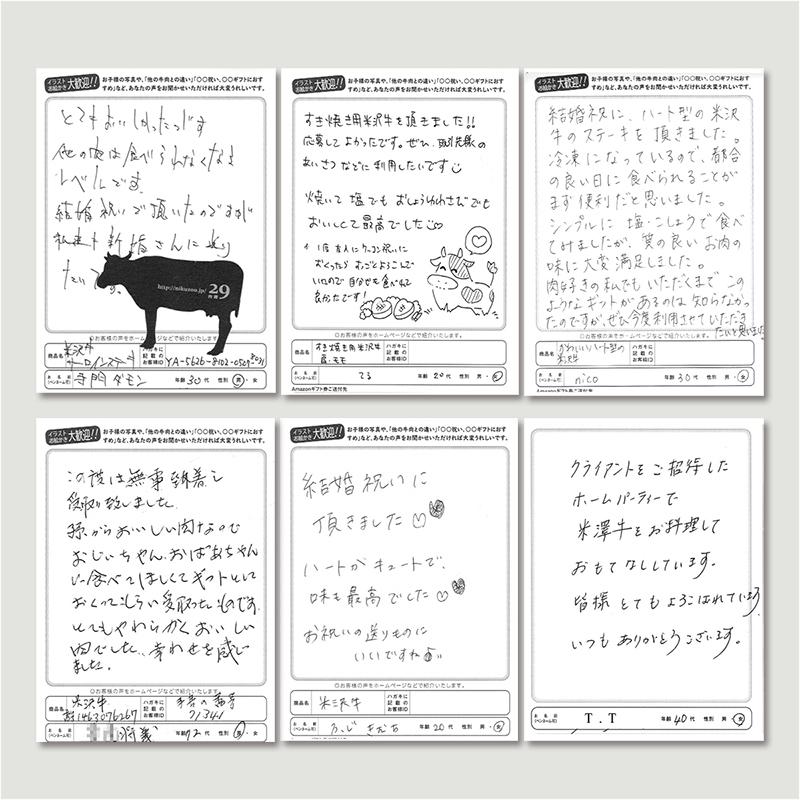 イラスト
お絵かき
大歓迎!!
お子様の写真や、「他の牛肉との違い」「〇〇祝い、〇〇ギフトにおすすめ」など、あなたの声をお聞かせいただければ大変うれしいです。
とてもおいしかったです
他の肉は食べられなくなる
レベルです。
結婚祝いで頂いたのですが
私達も新婚さんに送り
たいです。
http://nikuzoo.jp/
29
〇お客様の声をホームページなどで紹介いたします。
商品名
米沢牛
サーロインステーキ
ハガキに
記載の
お客様ID
お名前
(ペンネーム可)
寺門ダモン
年齢 30代 性別 男・女
イラスト
お絵かき
大歓迎!!
お子様の写真や、「他の牛肉との違い」「〇〇祝い、〇〇ギフトにおすすめ」など、あなたの声をお聞かせいただければ大変うれしいです。
すき焼き用米沢牛を頂きました!!
応募してよかったです。ぜひ、取引先様の
あいさつなどに利用したいです
焼いて塩でもおしょうゆわさびでも
おいしくて最高でした
〇お客様の声をホームページなどで紹介いたします。
商品名
すき焼き用米沢牛
肩・モモ
ハガキに
記載の
お客様ID
お名前
(ペンネーム可)
てる
年齢 20代 性別 男・女
Amazonギフト券ご送付先
イラスト
お絵かき
大歓迎!!
お子様の写真や、「他の牛肉との違い」「〇〇祝い、〇〇ギフトにおすすめ」など、あなたの声をお聞かせいただければ大変うれしいです。
結婚祝に、ハート型の米沢
牛のステーキを頂きました。
冷凍になっているので、都合
の良い日に食べられることが
まず便利だと思いました。
シンプルに塩・こしょうで食べ
てみましたが、質の良いお肉の
味に大変満足しました。
肉好きの私でもいただくまでこの
ようなギフトがあるのは知らなかっ
たのですが、ぜひ今度利用させていただき
たいと思いました。
〇お客様の声をホームページなどで紹介いたします。
商品名
かわいいハート型の
米沢牛
ハガキに
記載の
お客様ID
お名前
(ペンネーム可)
nico
年齢 30代 性別 男・女
イラスト
お絵かき
大歓迎!!
お子様の写真や、「他の牛肉との違い」「〇〇祝い、〇〇ギフトにおすすめ」など、あなたの声をお聞かせいただければ大変うれしいです。
この度は無事到着し
受取り致しました。
孫からおいしい肉なので
おじいちゃん、おばあちゃん
に食べてほしくてギフトとして
おくってもらい受取ったものです。
とてもやわらかくおいしい
肉でした。幸わせを感じ
ました。
〇お客様の声をホームページなどで紹介いたします。
商品名
米沢牛
ハガキに
記載の
お客様ID
21341
お名前
(ペンネーム可)
年齢 72代 性別 男・女
イラスト
お絵かき
大歓迎!!
お子様の写真や、「他の牛肉との違い」「〇〇祝い、〇〇ギフトにおすすめ」など、あなたの声をお聞かせいただければ大変うれしいです。
結婚祝いに
頂きました♡
ハートがキュートで、
味も最高でした♡
お祝いの送りものに
いいですね♪
〇お客様の声をホームページなどで紹介いたします。
商品名
米沢牛
ハガキに
記載の
お客様ID
お名前
(ペンネーム可)
年齢 20代 性別 男・女
クライアントをご招待した
ホームパーティーで
米澤牛をお料理して
おもてなししています。
皆様とてもよろこばれています
いつもありがとうございます。
お名前
(ペンネーム可)
T.T
年齢 40代 性別 男・女